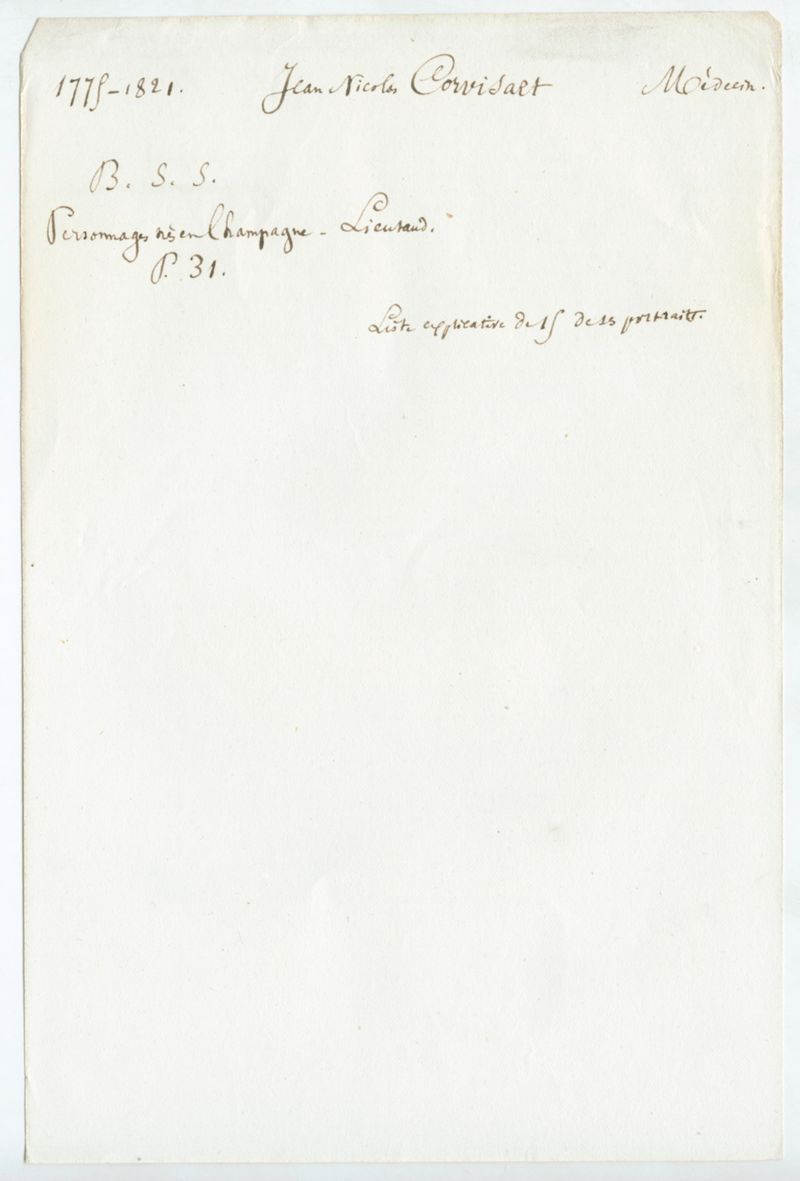 1775-1821. Jean Nicolas Corvisart Médecin.
B. S. S.
Personnages nés en Champagne - Lieutaud.
P. 31.
Liste explicative de 15 de portraits.